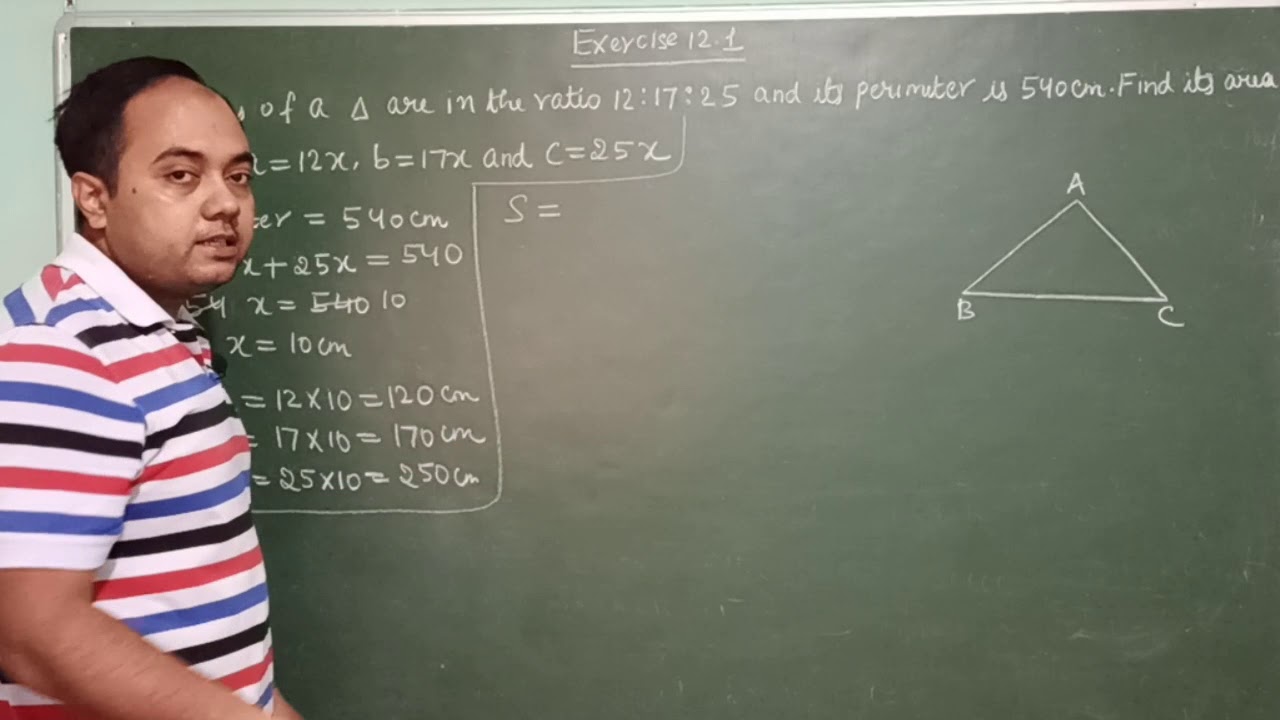 Exercise 12.1
of a Δ are in the ratio 12:17:25 and its perimeter is 540cm. Find its area
=12x, b=17x and C=25x
= 540cm
x+25x = 540
54 x = 540 10
x = 10cm
= 12×10 = 120cm
= 17×10 = 170cm
= 25×10 = 250cm
S =
A
B
C